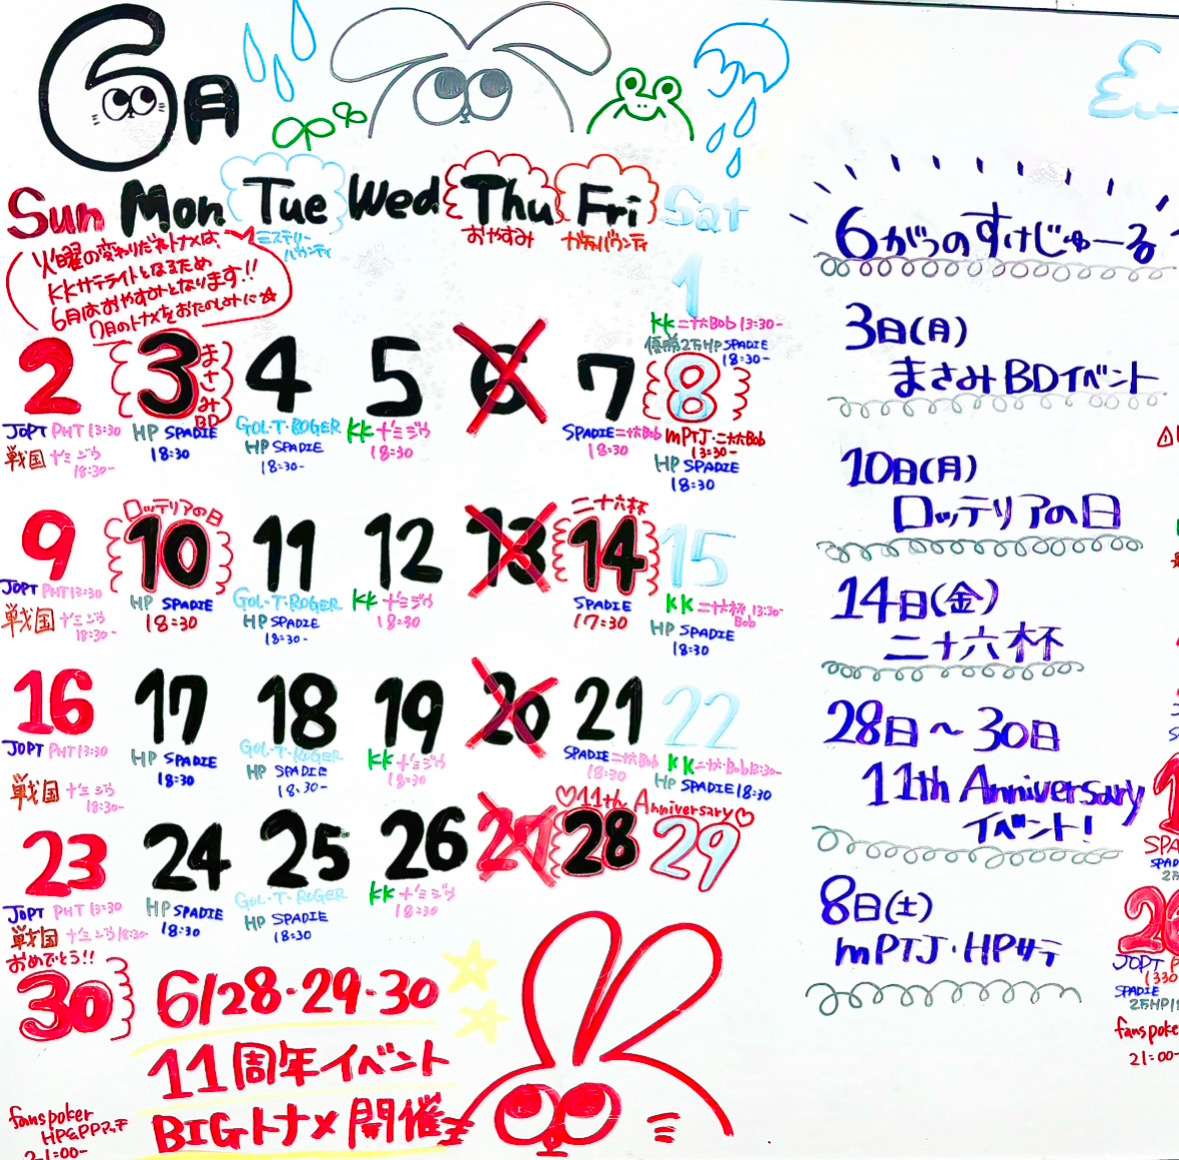 6月
Sun Mon Tue Wed Thu Fri Sat
ミステリー
バウンティ
おやすみ
火曜の変わりだねトナメは、
KKサテライトとなるため
6月はおやすみとなります!!
7月のトナメをおたのしみに☆
1
KK 二十六Bob 13:30-
優勝2万HP SPADIE
18:30-
2
JOPT PHT 13:30
戦国
18:30-
3
まさみBD
HP SPADIE
18:30
4
GOL・T・ROGER
HP SPADIE
18:30-
5
KK
18:30
6
7
SPADIE 二十六Bob
18:30
8
mPTJ・二十六Bob
13:30-
HP SPADIE
18:30
9
JOPT PHT 13:30
戦国
18:30-
ロッテリアの日
10
HP SPADIE
18:30
11
GOL・T・ROGER
HP SPADIE
18:30-
12
KK
18:30
13
二十六杯
14
SPADIE
17:30
15
KK 二十六杯 13:30-
Bob
HP SPADIE
18:30
16
JOPT PHT 13:30
戦国
18:30-
17
HP SPADIE
18:30
18
GOL・T・ROGER
HP SPADIE
18:30-
19
KK
18:30
20
21
SPADIE 二十六Bob
18:30
22
KK 二十六Bob 13:30-
HP SPADIE 18:30
23
JOPT PHT 13:30
戦国
18:30-
24
HP SPADIE
18:30
25
GOL・T・ROGER
HP SPADIE
18:30
26
KK
18:30
27
♡11th Anniversary♡
28
29
おめでとう!!
30
fanspoker
21:00-
6/28・29・30
11周年イベント
BIGトナメ開催
6がつのすけじゅーる
3日(月)
まさみBDイベント
10日(月)
ロッテリアの日
14日(金)
二十六杯
28日〜30日
11th Anniversary
イベント!
8日(土)
mPTJ・HPサテ
SPADIE
fanspoke
21:00-